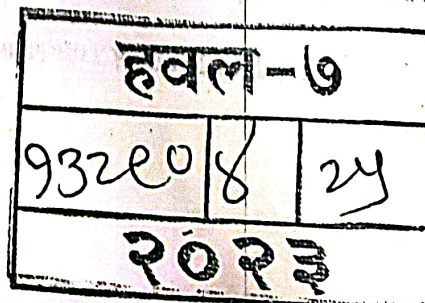 हवल-७
१३२९० ४ २५
२०२३